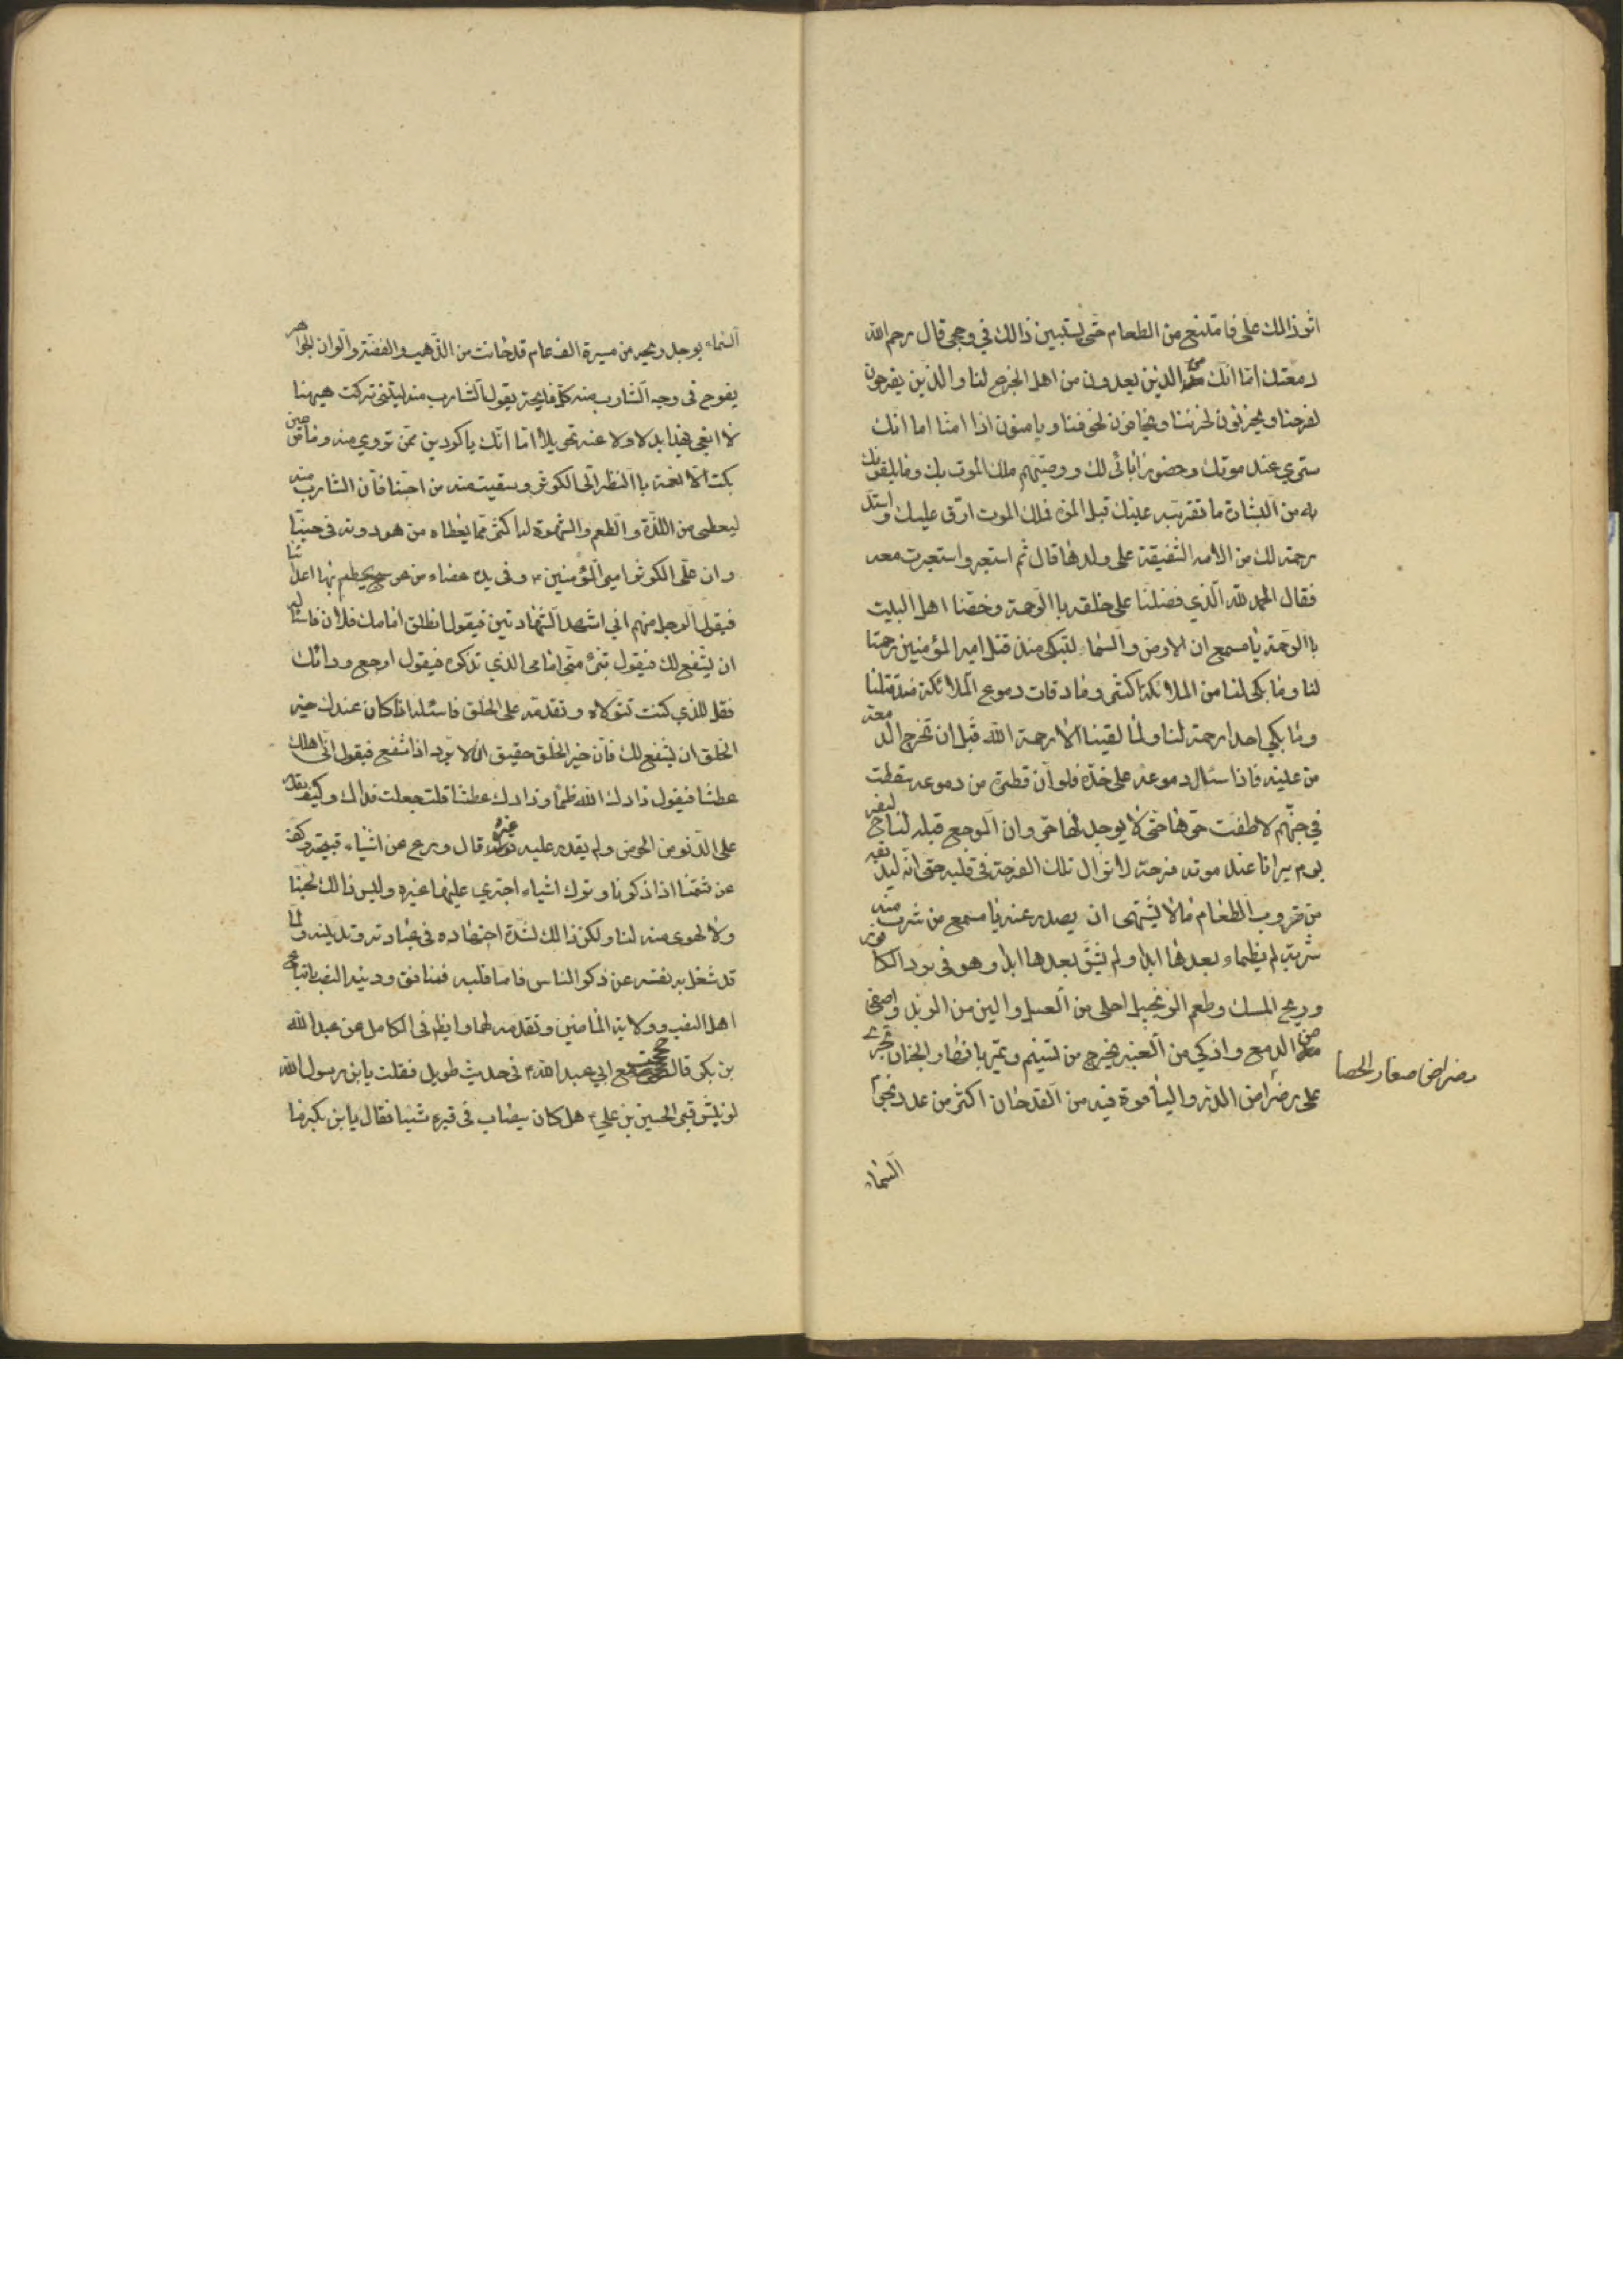 اثر ذالك على فامتنع من الطعام حتى يستبين ذالك في وجهي قال رحم الله
دمعتك اما انك من الذين يعدون من اهل الجزع لنا والذين يفرحون
لفرحنا ويحزنون لحزننا ويخافون لخوفنا ويامنون اذا امنا اما انك
سترى عند موتك وحضور ابائى لك ووصيتهم ملك الموت بك وما يلقونك
به من البشارة ما تقر به عينك قبل الموت فملك الموت ارق عليك واشد
رحمة لك من الام الشفيقة على ولدها قال ثم استعبر واستعبرت معه
فقال الحمد لله الذي فضلنا على خلقه باالرحمة وخصنا اهل البيت
باالرحمة يا مسمع ان الارض والسماء لتبكى منذ قتل امير المؤمنين رحمة
لنا وما بكى لنا من الملائكة اكثر وما رقات دموع الملائكة منذ قتلنا
وما بكى احد رحمة لنا ولما لقينا الا رحمه الله قبل ان تخرج الدمعة
من عينه فاذا سال دموعه على خده فلو ان قطرة من دموعه سقطت
في جهنم لاطفت حرها حتى لا يوجد لها حر وان الموجع قلبه لنا ليفرح
يوم يرانا عند موته فرحة لا تزال تلك الفرحة في قلبه حتى
من ضروب الطعام ما لا يشتهى ان يصدر عنه يا مسمع من شرب منه
شربة لم يظماء بعدها ابدا ولم يشق بعدها ابدا وهو في برد الكافور
وريح المسك وطعم الزنجبيل احلى من العسل والين من الزبد واصفى
من الدمع واذكى من العنبر يخرج من تسنيم ويمر بانهار الجنان تجرى
على رضراض الدر والياقوت فيه من القدحان اكثر من عدد نجوم
رضراض صغار الحصا
السماء
السماء يوجد ريحه من مسيرة الف عام قدحانه من الذهب والفضة والوان الجواهر
يفوح في وجه الشارب منه كل فايحة يقول الشارب منه ليتنى تركت ههنا
لا ابغى بهذا بدلا ولا عنه تحويلا اما انك يا كردين ممن تروى منه وما من عين
بكت الا نعمت باالنظر الى الكوثر وسقيت منه من احبنا فان الشارب منه
ليعطى من اللذة والطعم والشهوة له اكثر مما يعطاه من هو دونه في حبنا
وان على الكوثر امير المؤمنين ع وفى يده عصاء من عوسج يحطم بها اعدائنا
فيقول الرجل منهم اني اشهد الشهادتين فيقول انطلق امامك فلان فاسئله
ان يشفع لك فيقول تبرء منى امامى الذي تذكره فيقول ارجع ورائك
فقل للذي كنت تتولاه وتقدمه على الخلق فاسئله اذا كان عندك خير
الخلق ان يشفع لك فان خير الخلق حقيق ان لا يرد اذا شفع فيقول انى اهلك
عطشا فيقول زادك الله ظمأ وزادك عطشا قلت جعلت فداك وكيف يقدر
على الدنو من الحوض ولم يقدر عليه غيره قال ورع عن اشياء قبيحة وكف
عن شتمنا اذا ذكرنا وترك اشياء اجترى عليها غيره وليس ذالك لحبنا
ولا لهوى منه لنا ولكن ذالك لشدة اجتهاده في عبادته وتدينه ولما
قد شغل به نفسه عن ذكر الناس فاما قلبه فمنافق ودينه النصب باتباع
اهل النصب وولاية الماضين وتقدمه لهما وايضا في الكامل عن عبد الله
بن بكر قال حججت مع ابي عبد الله ع في حديث طويل فقلت يابن رسول الله
لو نبش قبر الحسين بن علي ع هل كان يصاب في قبره شيئا فقال يابن بكير ما